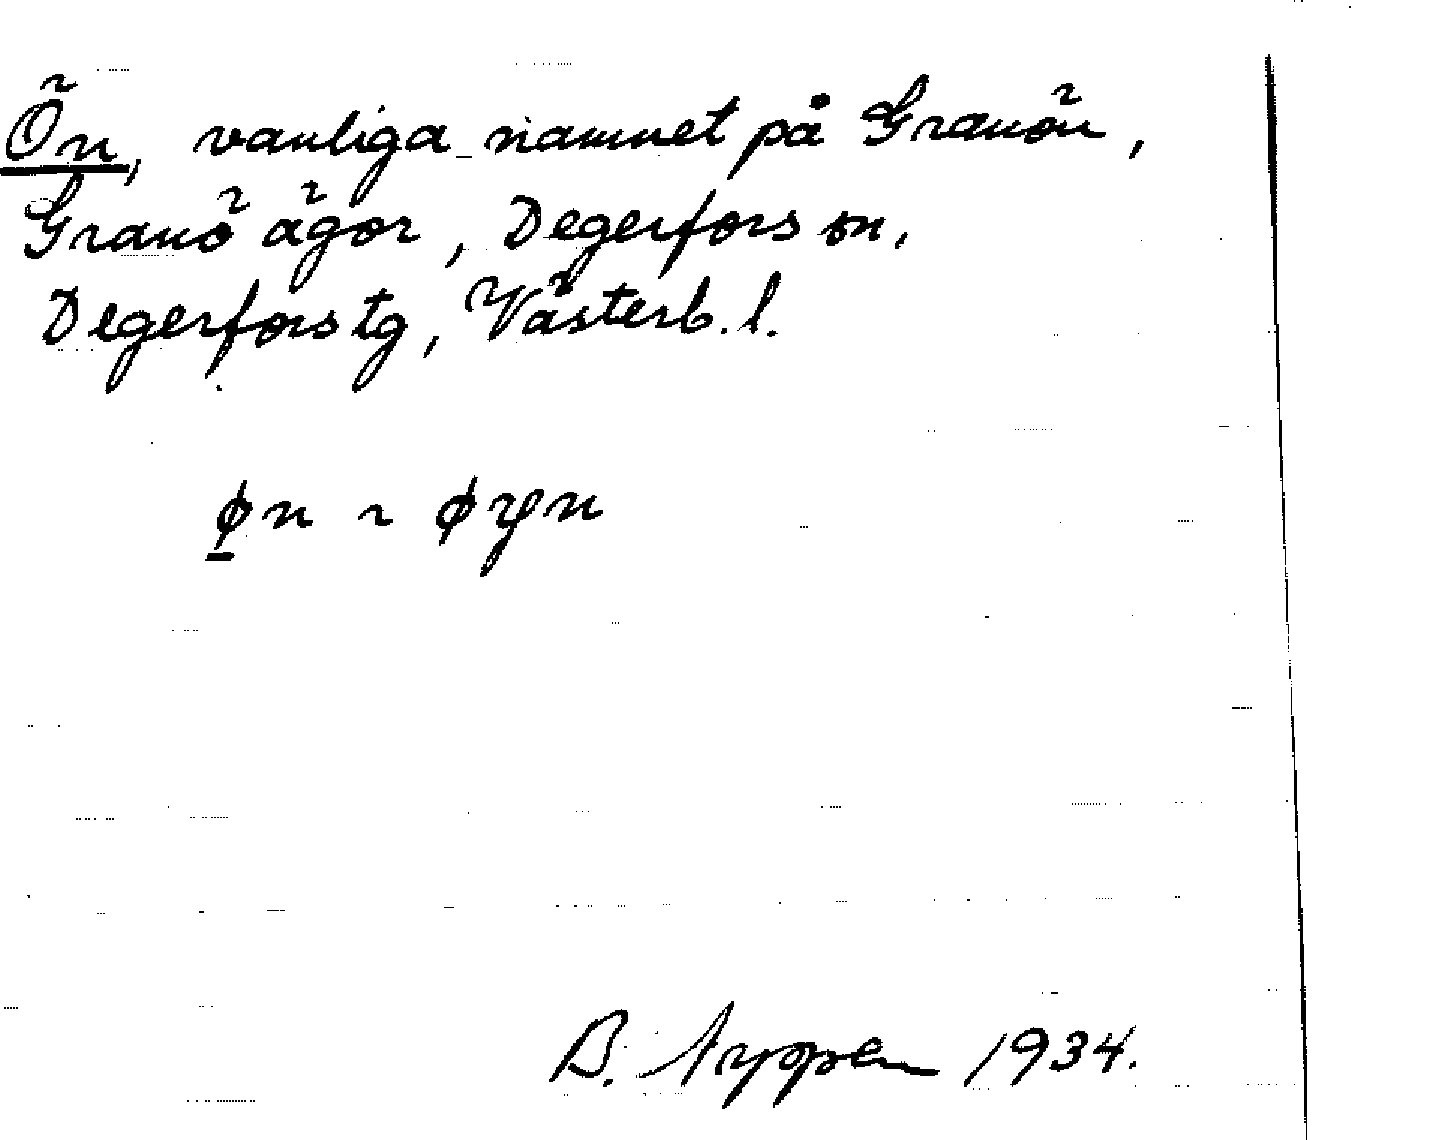 Ön, vanliga namnet på Granön,
Granö ägor, Degerfors sn,
Degerfors tg, Västerb. l.
B. 1934.